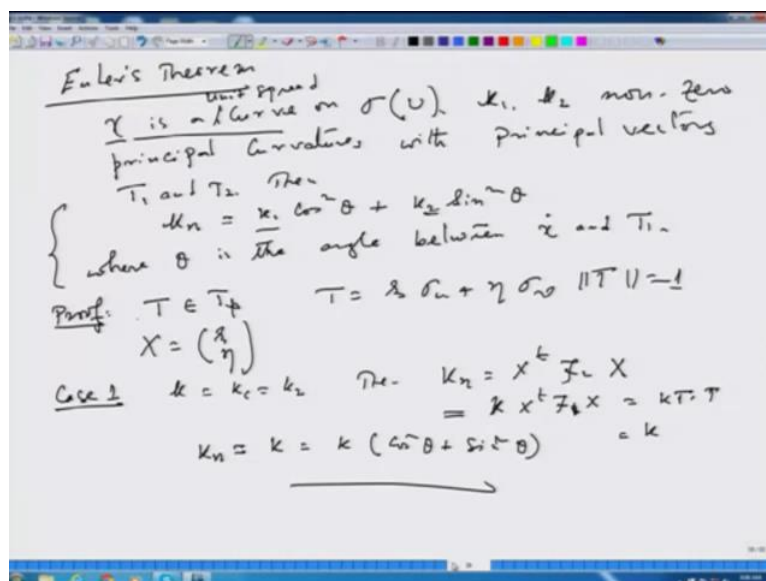 Euler's Theorem
unit speed
γ is a curve on σ(U). κ₁, κ₂ non-zero
principal curvatures with principal vectors
T₁ and T₂. Then
κₙ = κ₁ cos²θ + κ₂ sin²θ
where θ is the angle between γ̇ and T₁.
Proof: T ∈ Tₚ T = ξ σᵤ + η σᵥ ||T|| = 1
X = (ξ η)
Case 1 κ = κ₁ = κ₂ Then κₙ = Xᵗ F₂ X
= κ Xᵗ F₁ X = κ T·T
κₙ = κ = κ (cos²θ + sin²θ) = κ